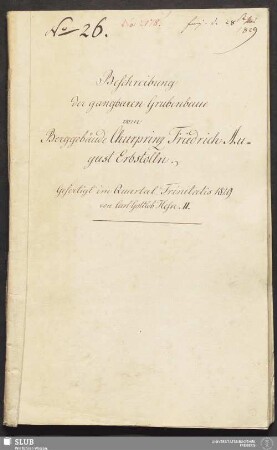 No 26.
1829
Beschreibung
der gangbaren Grubenbaue
vom
Berggebäude Churprinz Friedrich Au-
gust Erbstolln.
Gefertigt im Quartal Trinitatis 1829
von Carl Gottlieb
SLUB
Wir führen Wissen.
UNIVERSITÄTSBIBLIOTHEK
FREIBERG